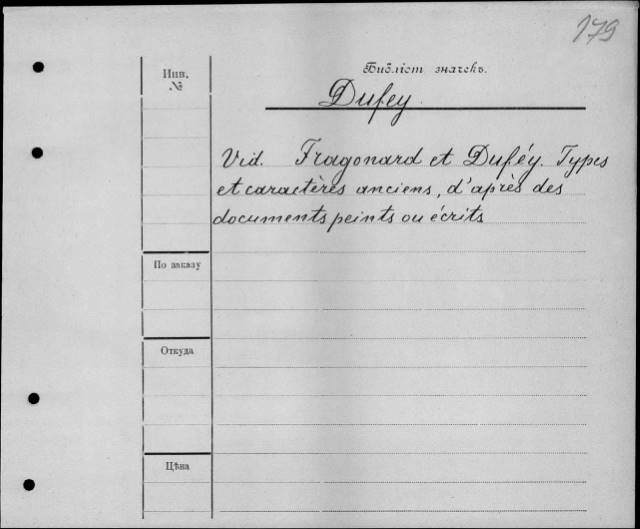 179
Инв.
№
Библіот значекъ.
Dufey
Vid. Fragonard et Duféy. Types
et caractères anciens, d'après des
documents peints ou écrits
По заказу
Откуда
Цѣна